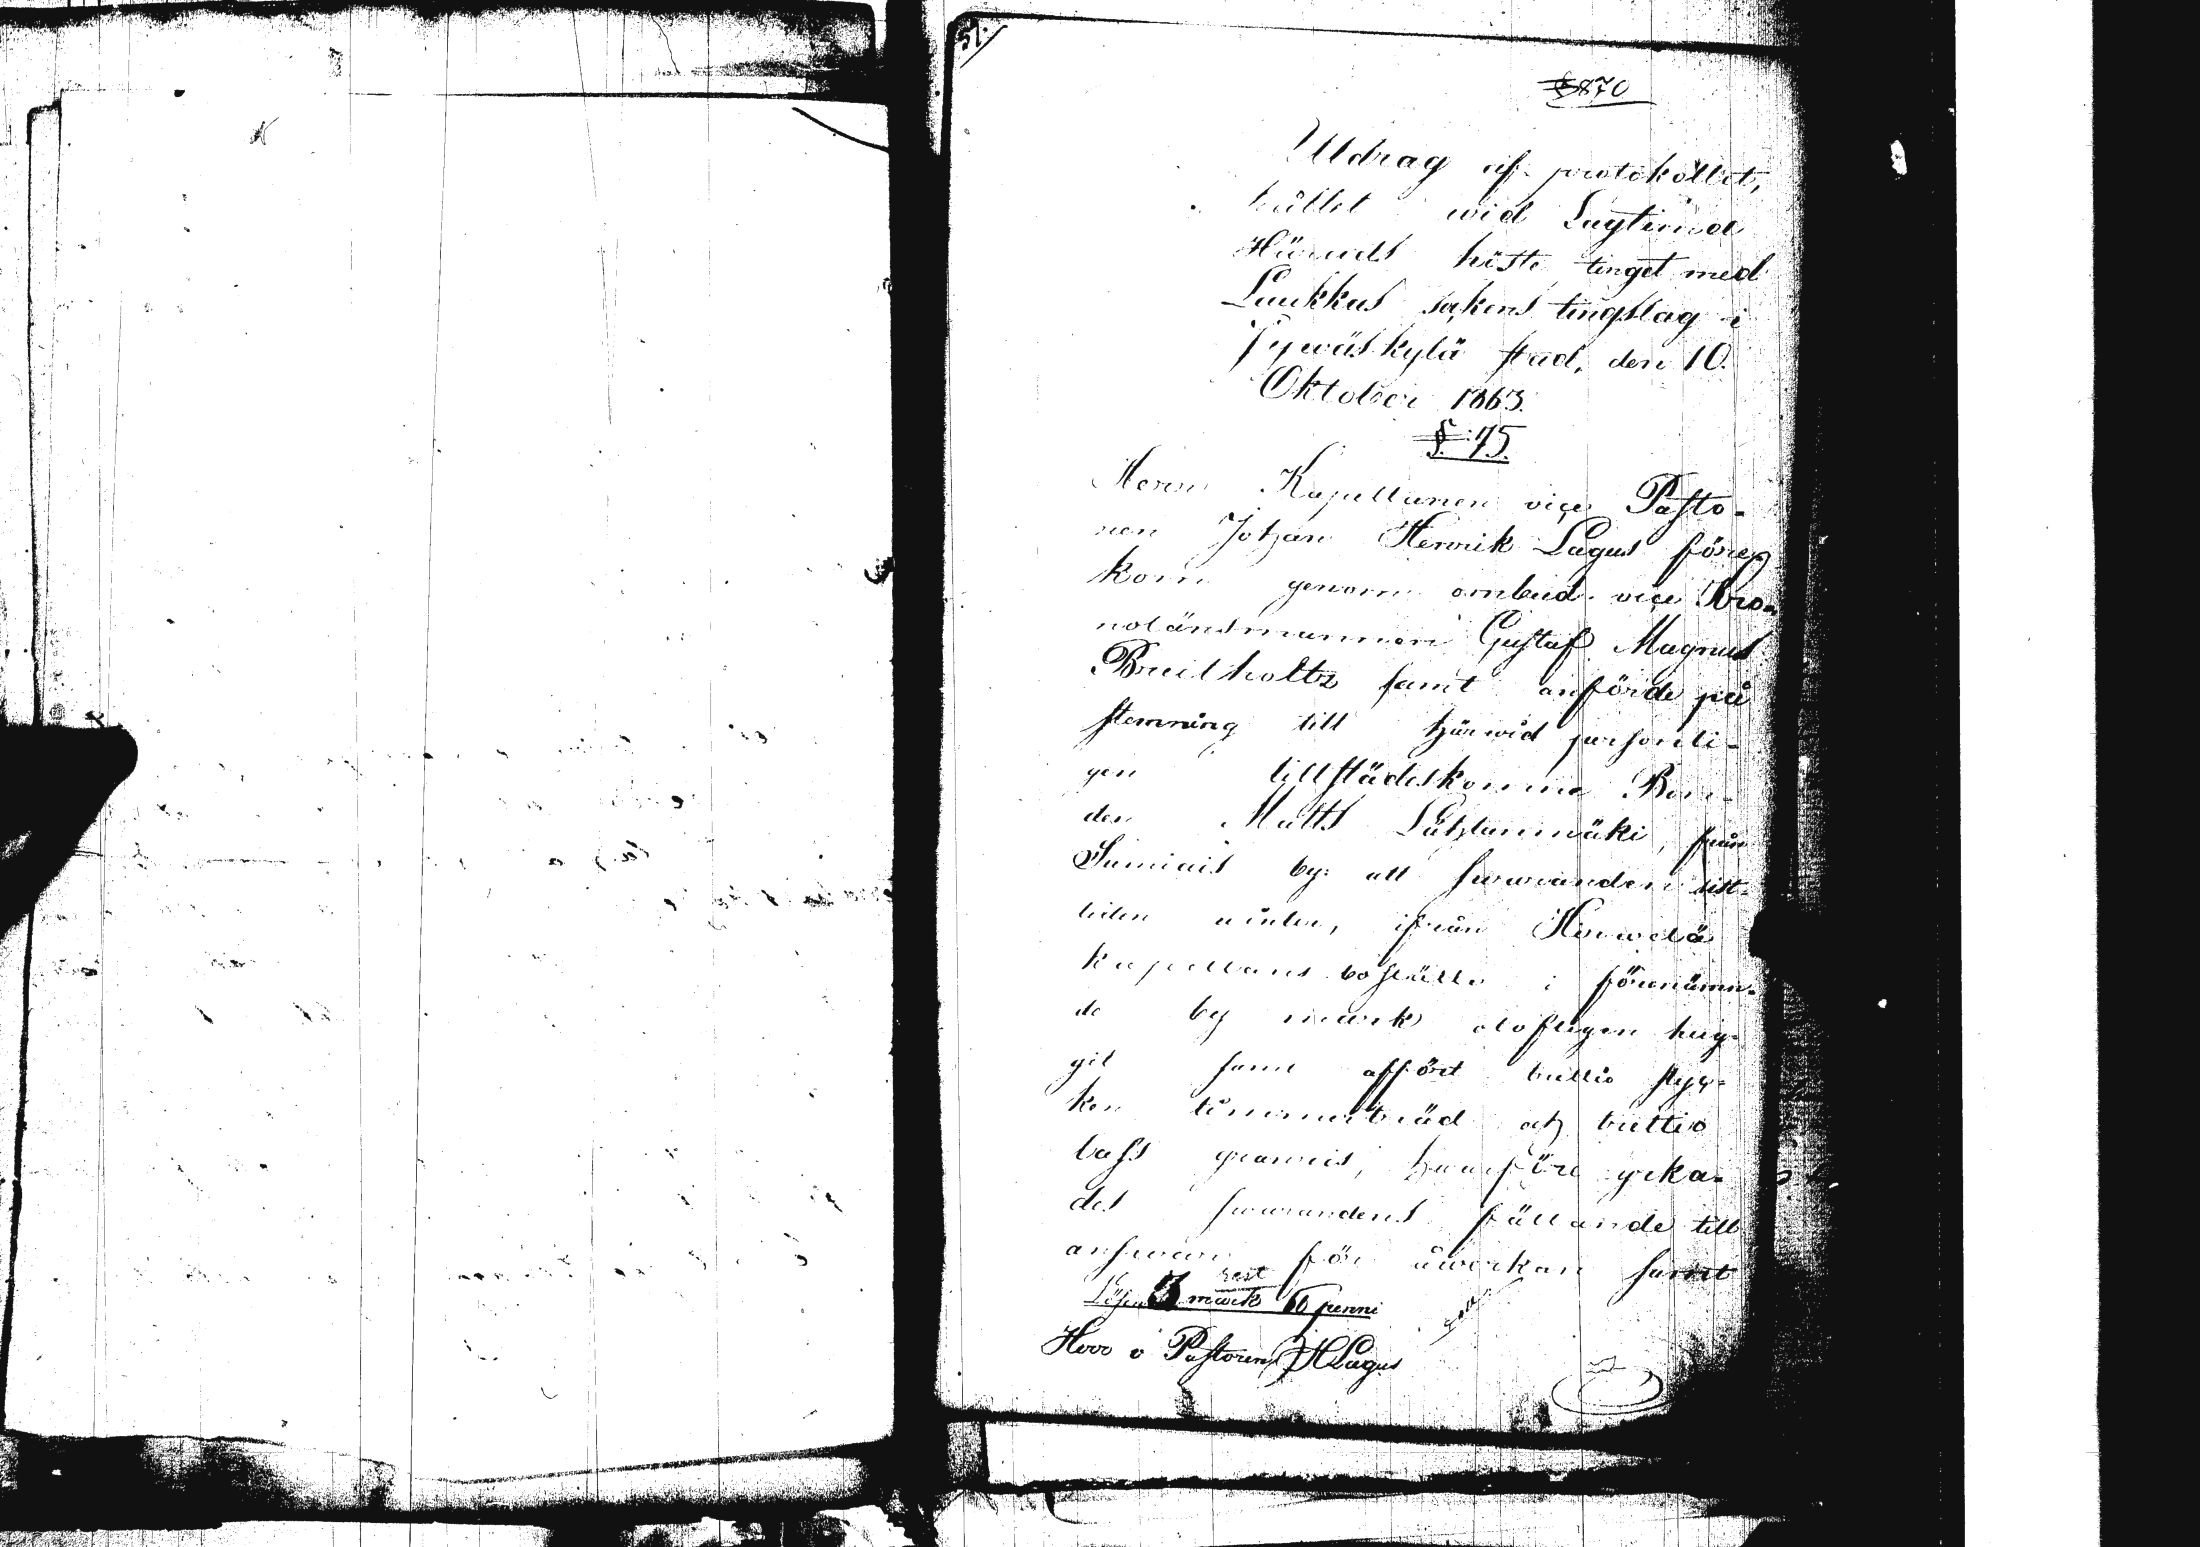 57.
870
Utdrag af protokollet,
hållet wid Lagtima
Härads höste tinget med
Laukkas sokens tingslag i
Jywäskylä stad, den 10.
Oktober 1863.
§. 75.
Herr Kapellanen vice Pasto-
ren Johan Henrik Lagus före-
kom genom ombud vice Kro-
nolänsmannen Gustaf Magnus
Breitholtz samt anförde på
stemning till härwid personli-
gen tillstädeskomne Bon-
den Matts Lähtanmäki, från
Sumiais by: att swaranden sist-
liden winter, ifrån Hirwelä
kapellans boställe i förenämn-
de by mark olofligen hug-
git samt afföret trettio styc-
ken timmerträd och trettio
lass granris, hwarföre yrka-
des swarandens fällande till
answar för åwerkan samt
Lösen 3 mark 60 penni
rest
Herr v Pastoren JHLagus